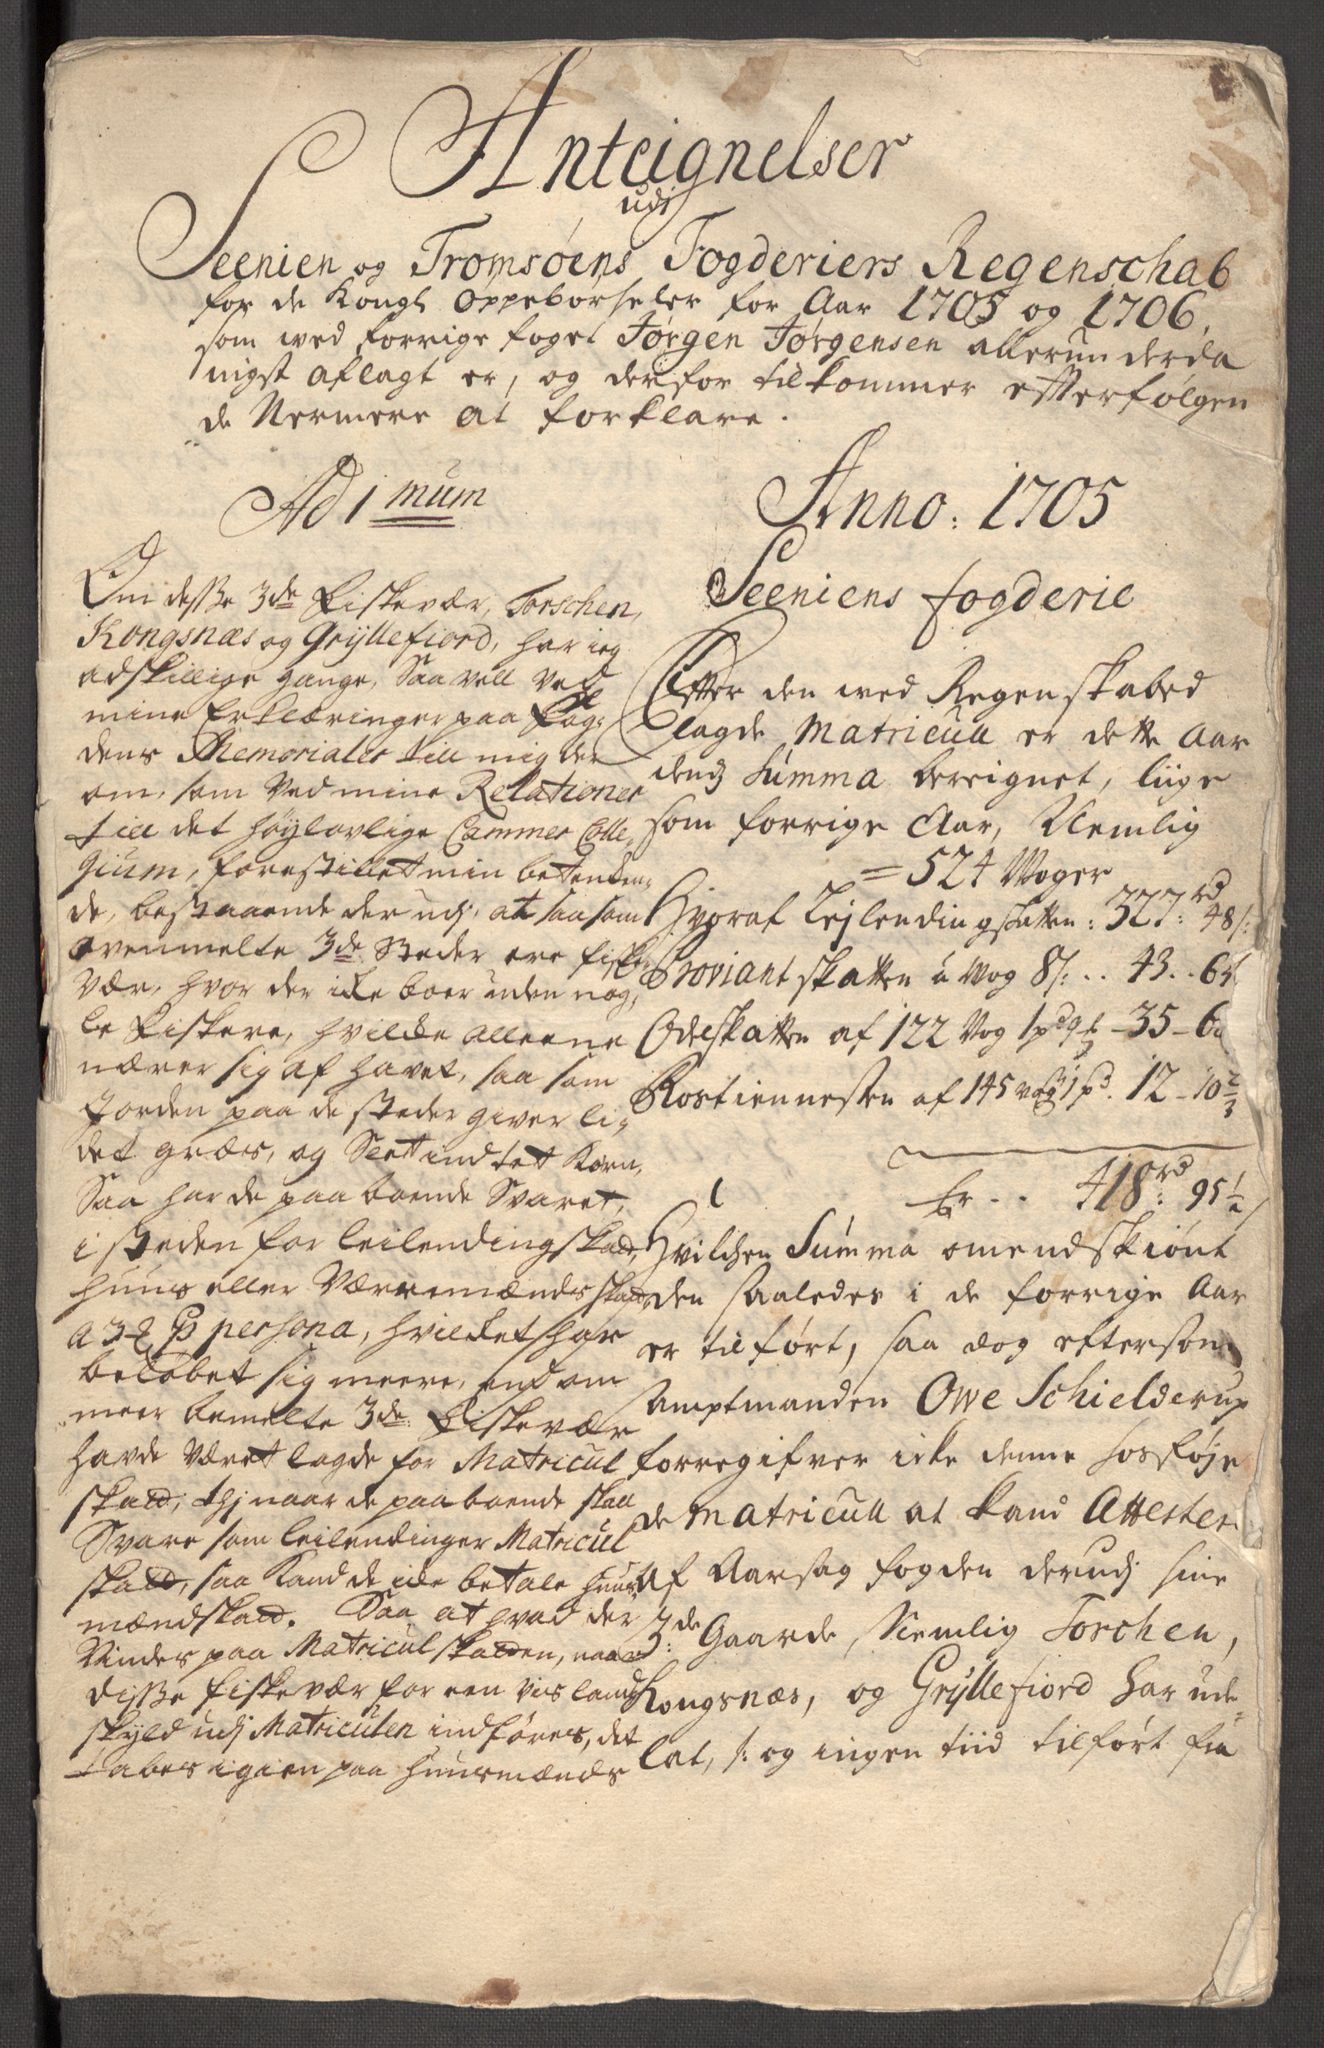 Anteignelser
udj
Seenien og Tromsøens Fogderiers Regenschab
for de Kongl Oppebørseler for Aar 1705 og 1706,
som wed forrige foget Jørgen Jørgensen allerunderda
nigst aflagt er, og derfor tilkommer efterfølgen
de Nermere at forklare.
Ad 1 mum
Om desse 3de Fiskevær, Torschen,
Kongsnæs og Gryllefiord, har ieg
adskillige gange, Saa vell ved
mine Erklæringer paa Fog:
dens Memorialer till mig der
om, som Ved mine Relationer
till det høylovlige Cammer Colle,
gium, forestillet min betenken,
de, bestaaende der udj, at saa som
ovenmelte 3de Steder ere fiske
Vær, hvor der icke boer uden nog,
le Fiskere, hvilcke alleene
nærer sig af havet, saa som
Jorden paa de Steder giver li,
det græs, og Slet indtet Korn,
Saa har de paa boende Svaret,
i steden for leilendingskatt,
huus eller Værremænds skatt,
a 3 ℔ persona, hvilcket har
beløbet sig meere, end om
meer bemelte 3de Fiskevær
havde Været lagde for Matricul
skatt, thj naar de paa boende skall
Svare som leilendinger Matricul
skatt, saa Kand de icke betale huus
mændskatt. Saa at hvad der
Vindes paa Matriculskatten, naar
disse fiskevær for een vis land
skyld udj Matriculen indføres, det
tabes igien paa Huusmænds
Anno: 1705
Seeniens fogderie
Efter den wed Regenskabed
lagde Matricull er dette Aar
dend Summa bereignet, liige
som forrige Aar, Nemlig
= 524 Woger
Hvoraf Lejlendingskatten: 327 rd 48 s:
Proviantskatten a Wog 8 s: .. 43..6
Odelskatten af 122 Vog 1 pd 9 - 35 - 6
Rostiennesten af 145 wog 1 pd. 12 - 10 2/3
Er .. 418 rd: 95 1/2
Hvilchen Summa omendskiønt
den saaledes i de forrige Aar
er tilført, saa dog eftersom
Amptmanden Owe Schielderup
forregifver icke denne hosføje
de Matricull at kand Attester
Af Aarsag fogden derudj sine
3de: Gaarde, Nemlig Torchen,
Kongsnæs, og Gryllefiord har ude
lat, /: og ingen tiid tilført fra